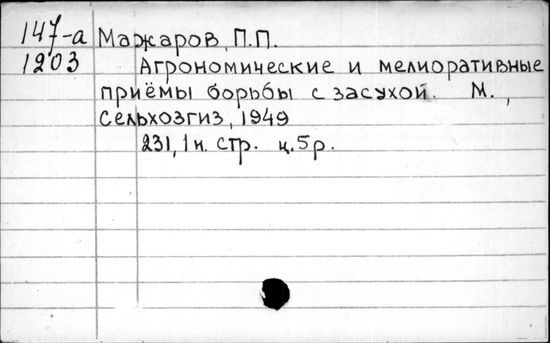 147-а Мажаров, П.П.
1203 Агрономические и мелиоративные
приёмы борьбы с засухой. М.,
Сельхозгиз, 1949
231, 1 н. стр. ц. 5 р.